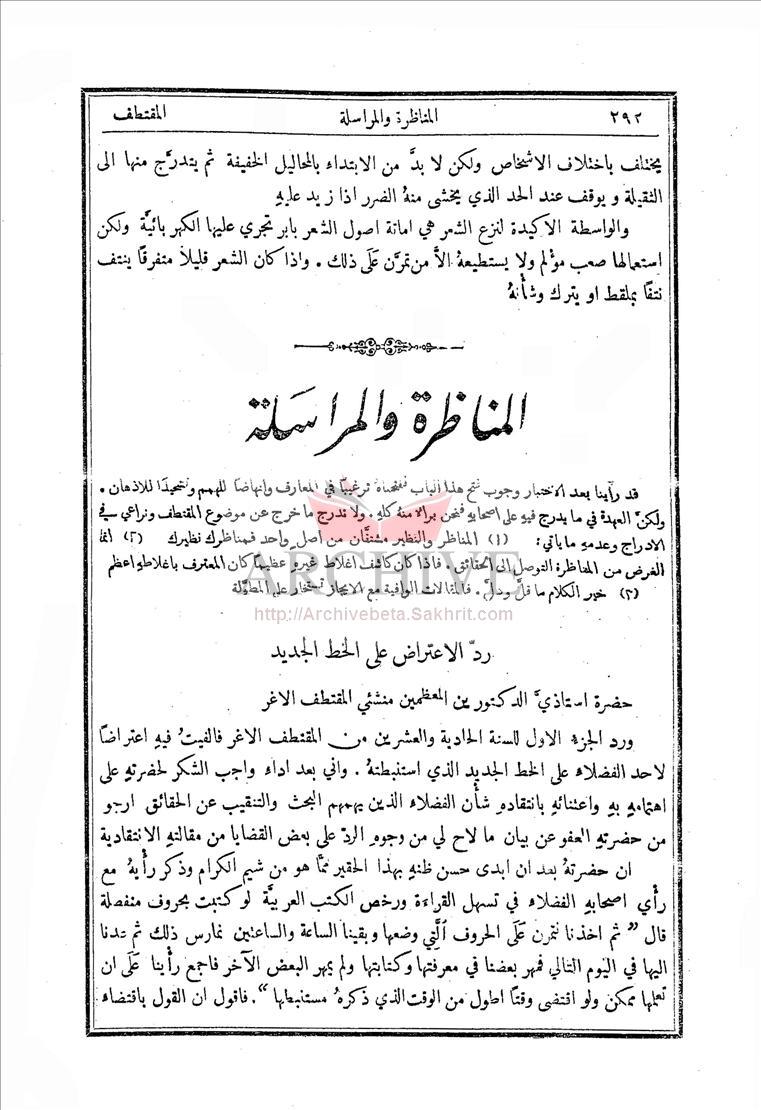 ٢٩٢ المناظرة والمراسلة المقتطف
يختلف باختلاف الاشخاص ولكن لا بدَّ من الابتداء بالمحاليل الخفيفة ثم يتدرَّج منها الى
الثقيلة ويوقف عند الحد الذي يخشى منهُ الضرر اذا زيد عليهِ
والواسطة الاكيدة لنزع الشعر هي اماتة اصول الشعر بابر تجري عليها الكهربائيَّة ولكن
استعمالها صعب مؤلم ولا يستطيعهُ الاَّ من تمرَّن عَلَى ذلك . واذا كان الشعر قليلاً متفرقاً ينتف
نتفًا بملقط او يترك وشأْنهُ
المناظرة والمراسَلة
قد رأينا بعد الاختبار وجوب فتح هذا الباب ففتحناهُ ترغيبًا في المعارف وانهاضًا للهمم وتشحيذًا للاذهان .
ولكنَّ العهدة في ما يدرج فيهِ على اصحابهِ فنحن برالا منهُ كلهِ . ولا ندرج ما خرج عن موضوع المقتطف ونراعي في
الادراج وعدمهِ ما ياتي : (١) المناظر والنظير مشتقَّان من اصل واحد فمناظرك نظيرك (٢) انما
الغرض من المناظرة التوصل الى الحقائق . فاذا كان كاشف اغلاط غيرهِ عظيمًا كان المعترف باغلاطهِ اعظم
(٣) خير الكلام ما قلَّ ودلَّ . فالمقالات الوافية مع الايجاز تستخار على المطوَّلة
ARCHIVE
http://Archivebeta.Sakhrit.com
ردّ الاعتراض على الخط الجديد
حضرة استاذيَّ الدكتورين المعظمين منشئي المقتطف الاغر
ورد الجزء الاول للسنة الحادية والعشرين من المقتطف الاغر فالفيتُ فيهِ اعتراضًا
لاحد الفضلاء على الخط الجديد الذي استنبطتهُ . واني بعد اداء واجب الشكر لحضرتهِ على
اهتمامهِ بهِ واعتنائهِ بانتقادهِ شأْن الفضلاء الذين يهمهم البحث والتنقيب عن الحقائق ارجو
من حضرتهِ العفو عن بيان ما لاح لي من وجوه الردّ على بعض القضايا من مقالتهِ الانتقادية
ان حضرتهُ بعد ان ابدى حسن ظنهِ بهذا الحقير ممَّا هو من شيم الكرام وذكر رأْيهُ مع
رأي اصحابهِ الفضلاء في تسهل القراءة ورخص الكتب العربيَّة لو كتبت بحروف منفصلة
قال " ثم اخذنا نتمرن عَلَى الحروف الَّتي وضعها وبقينا الساعة والساعتين نمارس ذلك ثم عدنا
اليها في اليوم التالي فمهر بعضنا في معرفتها وكتابتها ولم يمهر البعض الآخر فاجمع رأْينا عَلَى ان
تعلمها ممكن ولو اقتضى وقتًا اطول من الوقت الذي ذكرهُ مستنبطها " . فاقول ان القول باقتضاء